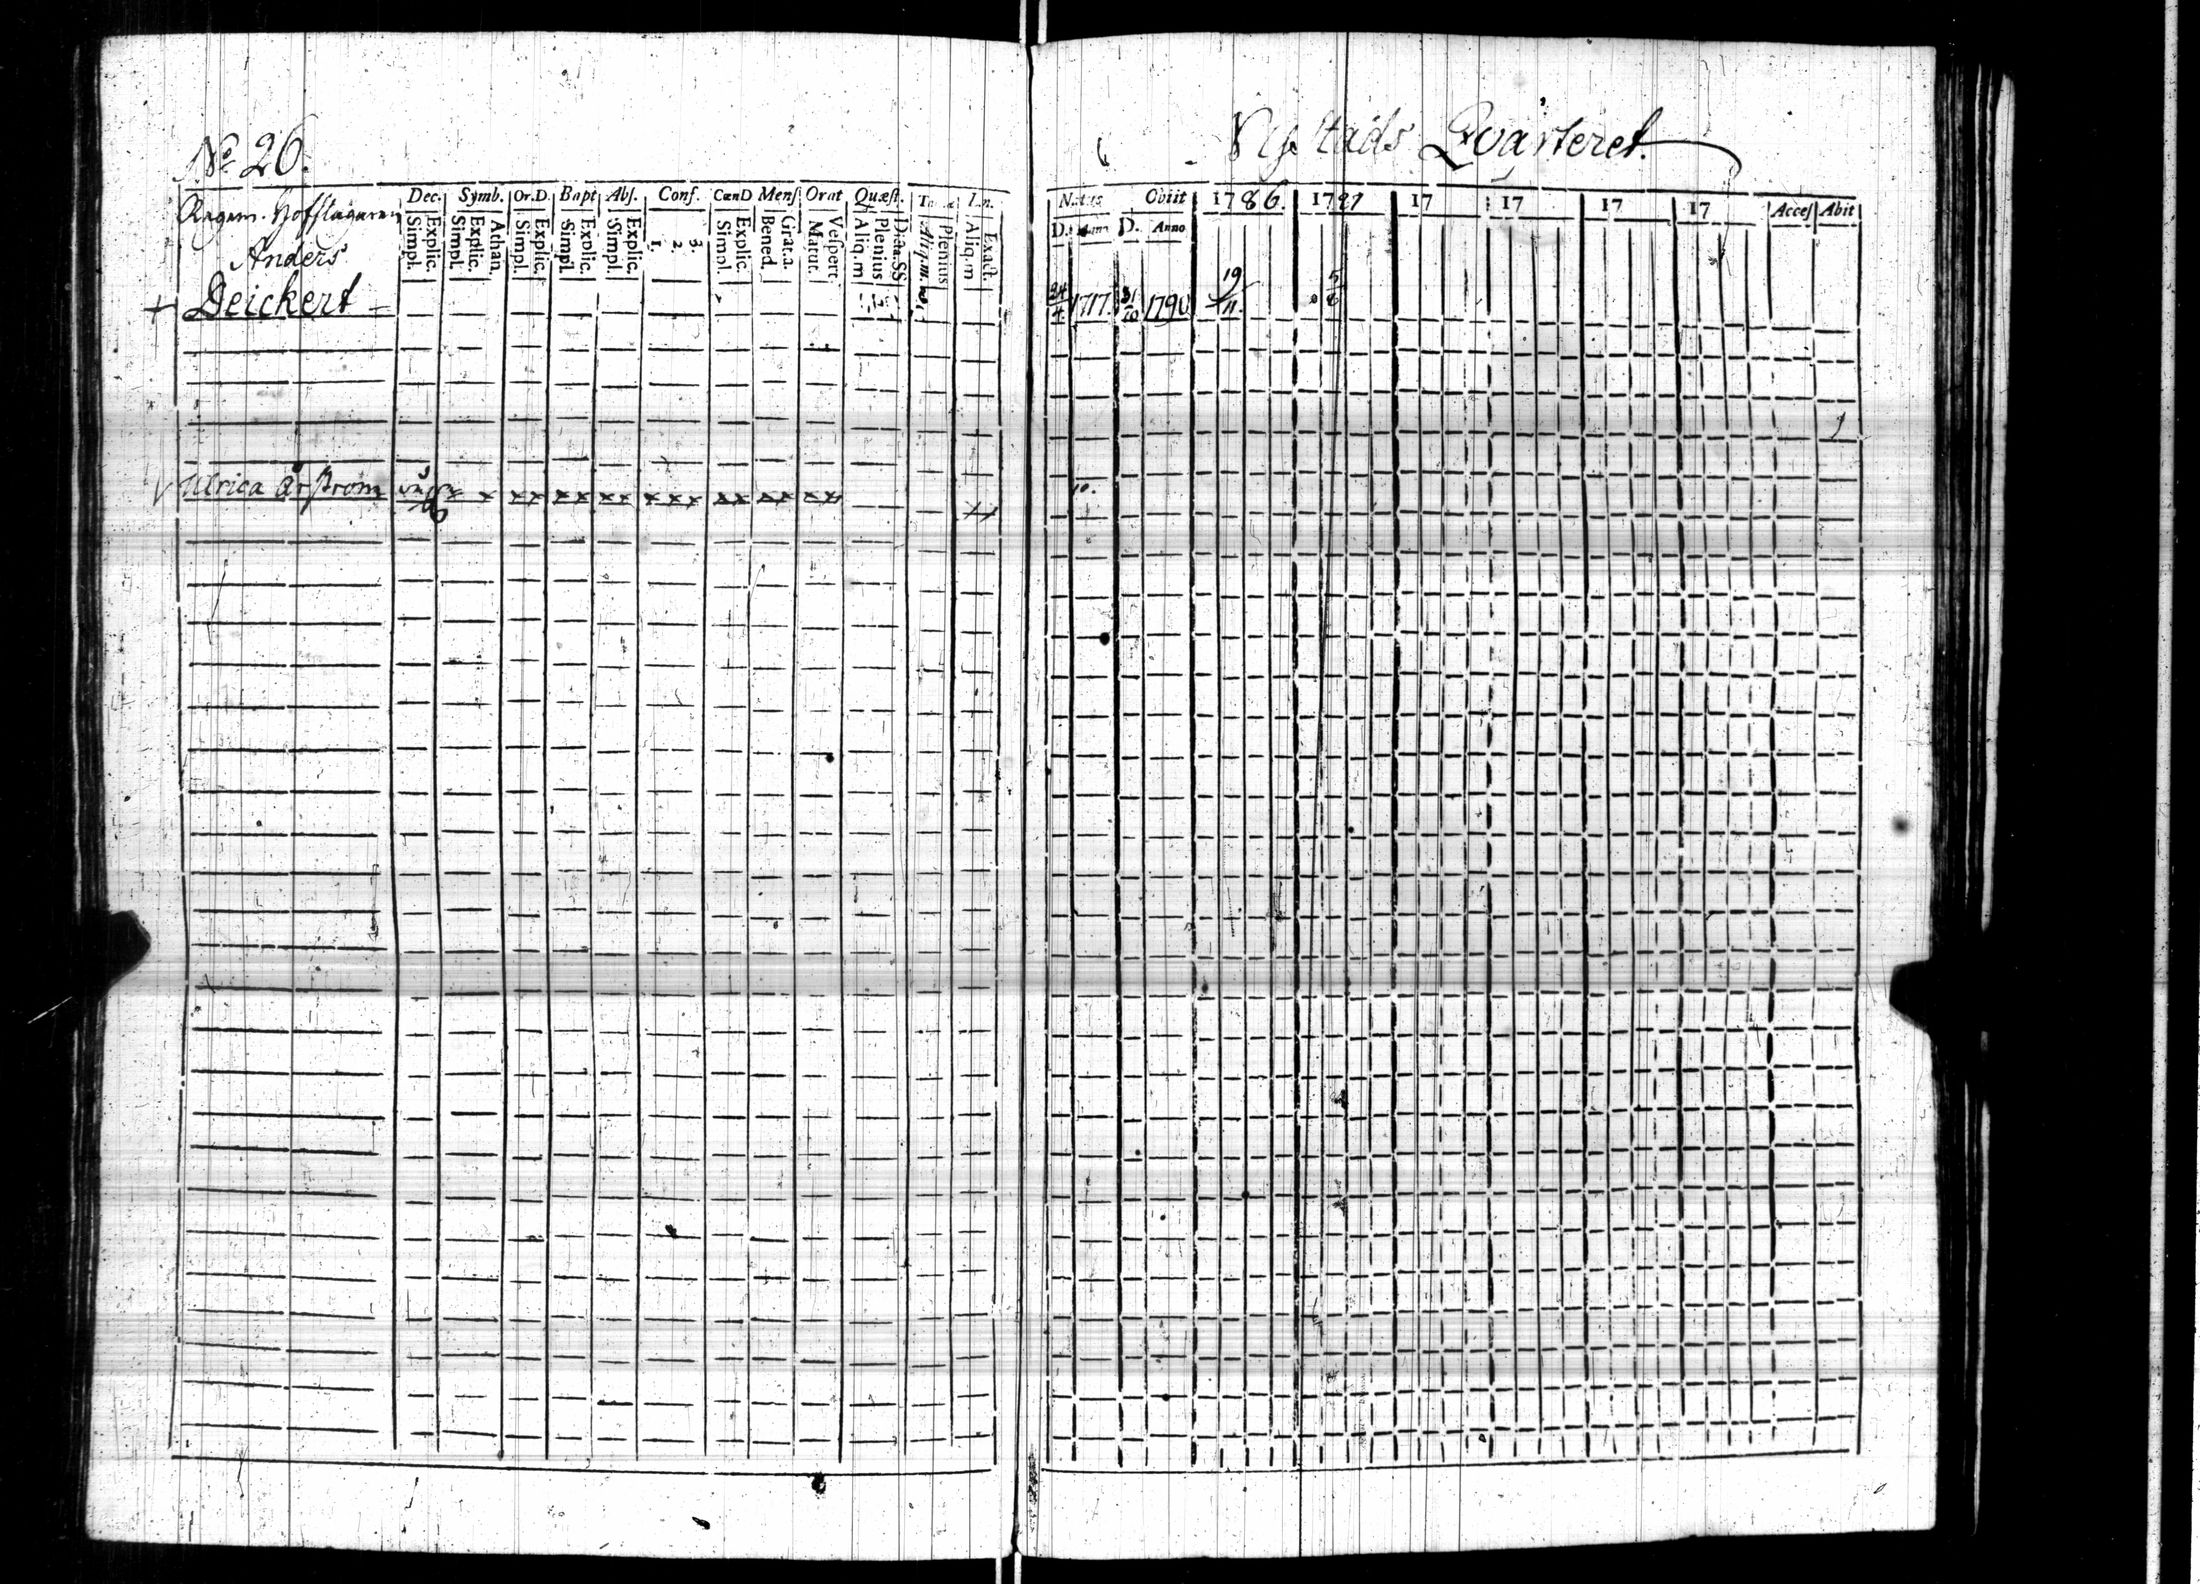 No 26.
Nystads Qvarteret.
Dec. Symb. Or.D. Bapt Abs. Conf. CœnD Mens Orat Quæst.
Simpl. Explic. Simpl. Explic. Athan. Simpl. Explic. Simpl. Explic. Simpl. Explic. 1. 2. 3. Simpl. Explic. Bened. Grat.a. Matut. Vespert Aliq.m Plenius D:ta.SS Aliq.m. Plenius Aliq.m Exact.
Obiit 1786. 17 17 17 17 17 Acces Abit
D. D. Anno
Regem. Hofslagaren
Anders
+ Deickert
24/4 1717. 31/10 1790 19/11. 5/8
Ulrica
x xx xx xx xxx xx xx xx